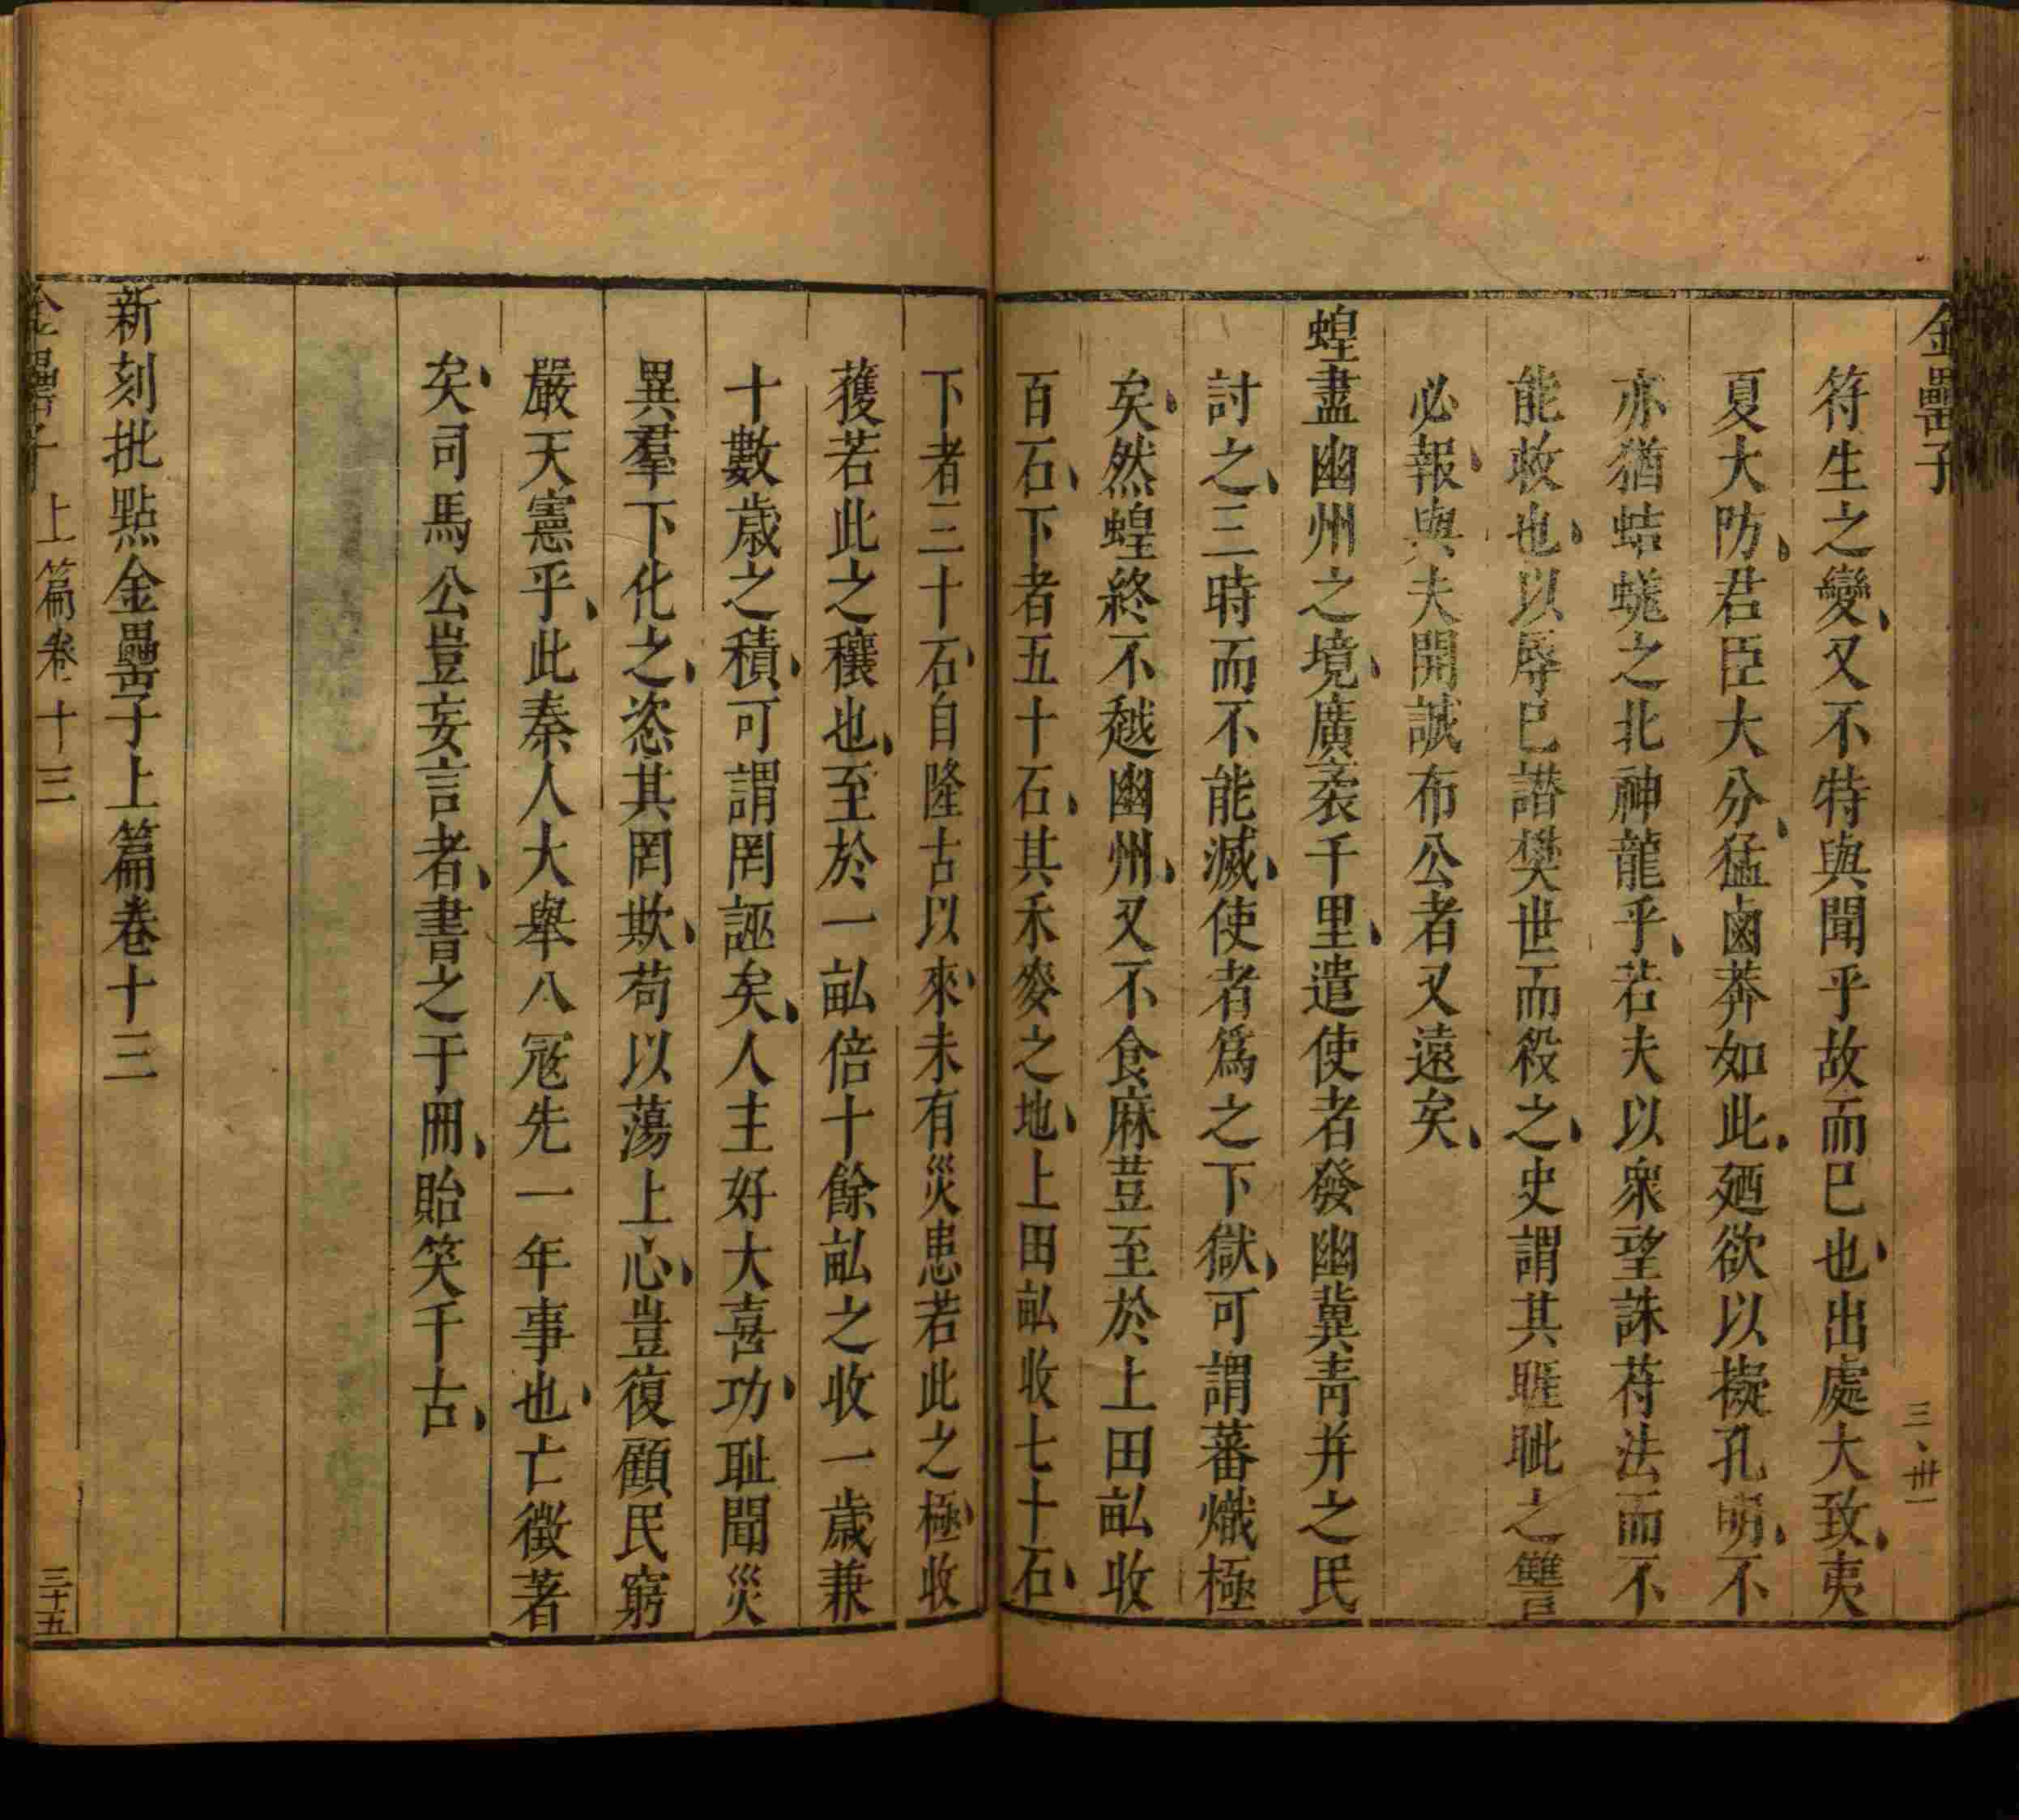 金罍子
三、卅一
符生之變、又不特與聞乎故而已也、出處大致、夷
夏大防、君臣大分、猛鹵莽如此、廼欲以擬孔明、不
亦猶蛣蜣之北神龍乎、若夫以衆望誅苻法而不
能救也、以辱已譖樊世而殺之、史謂其睚眦之讐
必報、與夫開誠布公者又遠矣、
蝗盡幽州之境、廣袤千里、遣使者發幽冀靑并之民
討之、三時而不能滅、使者爲之下獄、可謂蕃熾極
矣、然蝗終不越幽州、又不食麻荳至於上田畝收
百石、下者五十石、其禾麥之地、上田畝收七十石、
下者三十石、自隆古以來、未有災患若此之極、收
穫若此之穰也、至於一畝倍十餘畝之收一歲兼
十數歲之積、可謂罔誣矣、人主好大喜功、耻聞災
異羣下化之、恣其罔欺、苟以蕩上心、豈復顧民窮
嚴天憲乎、此秦人大舉入寇先一年事也、亡徵著
矣、司馬公豈妄言者、書之于冊、貽笑千古、
新刻批點金罍子上篇卷十三
金罍子 上篇卷十三 三十五